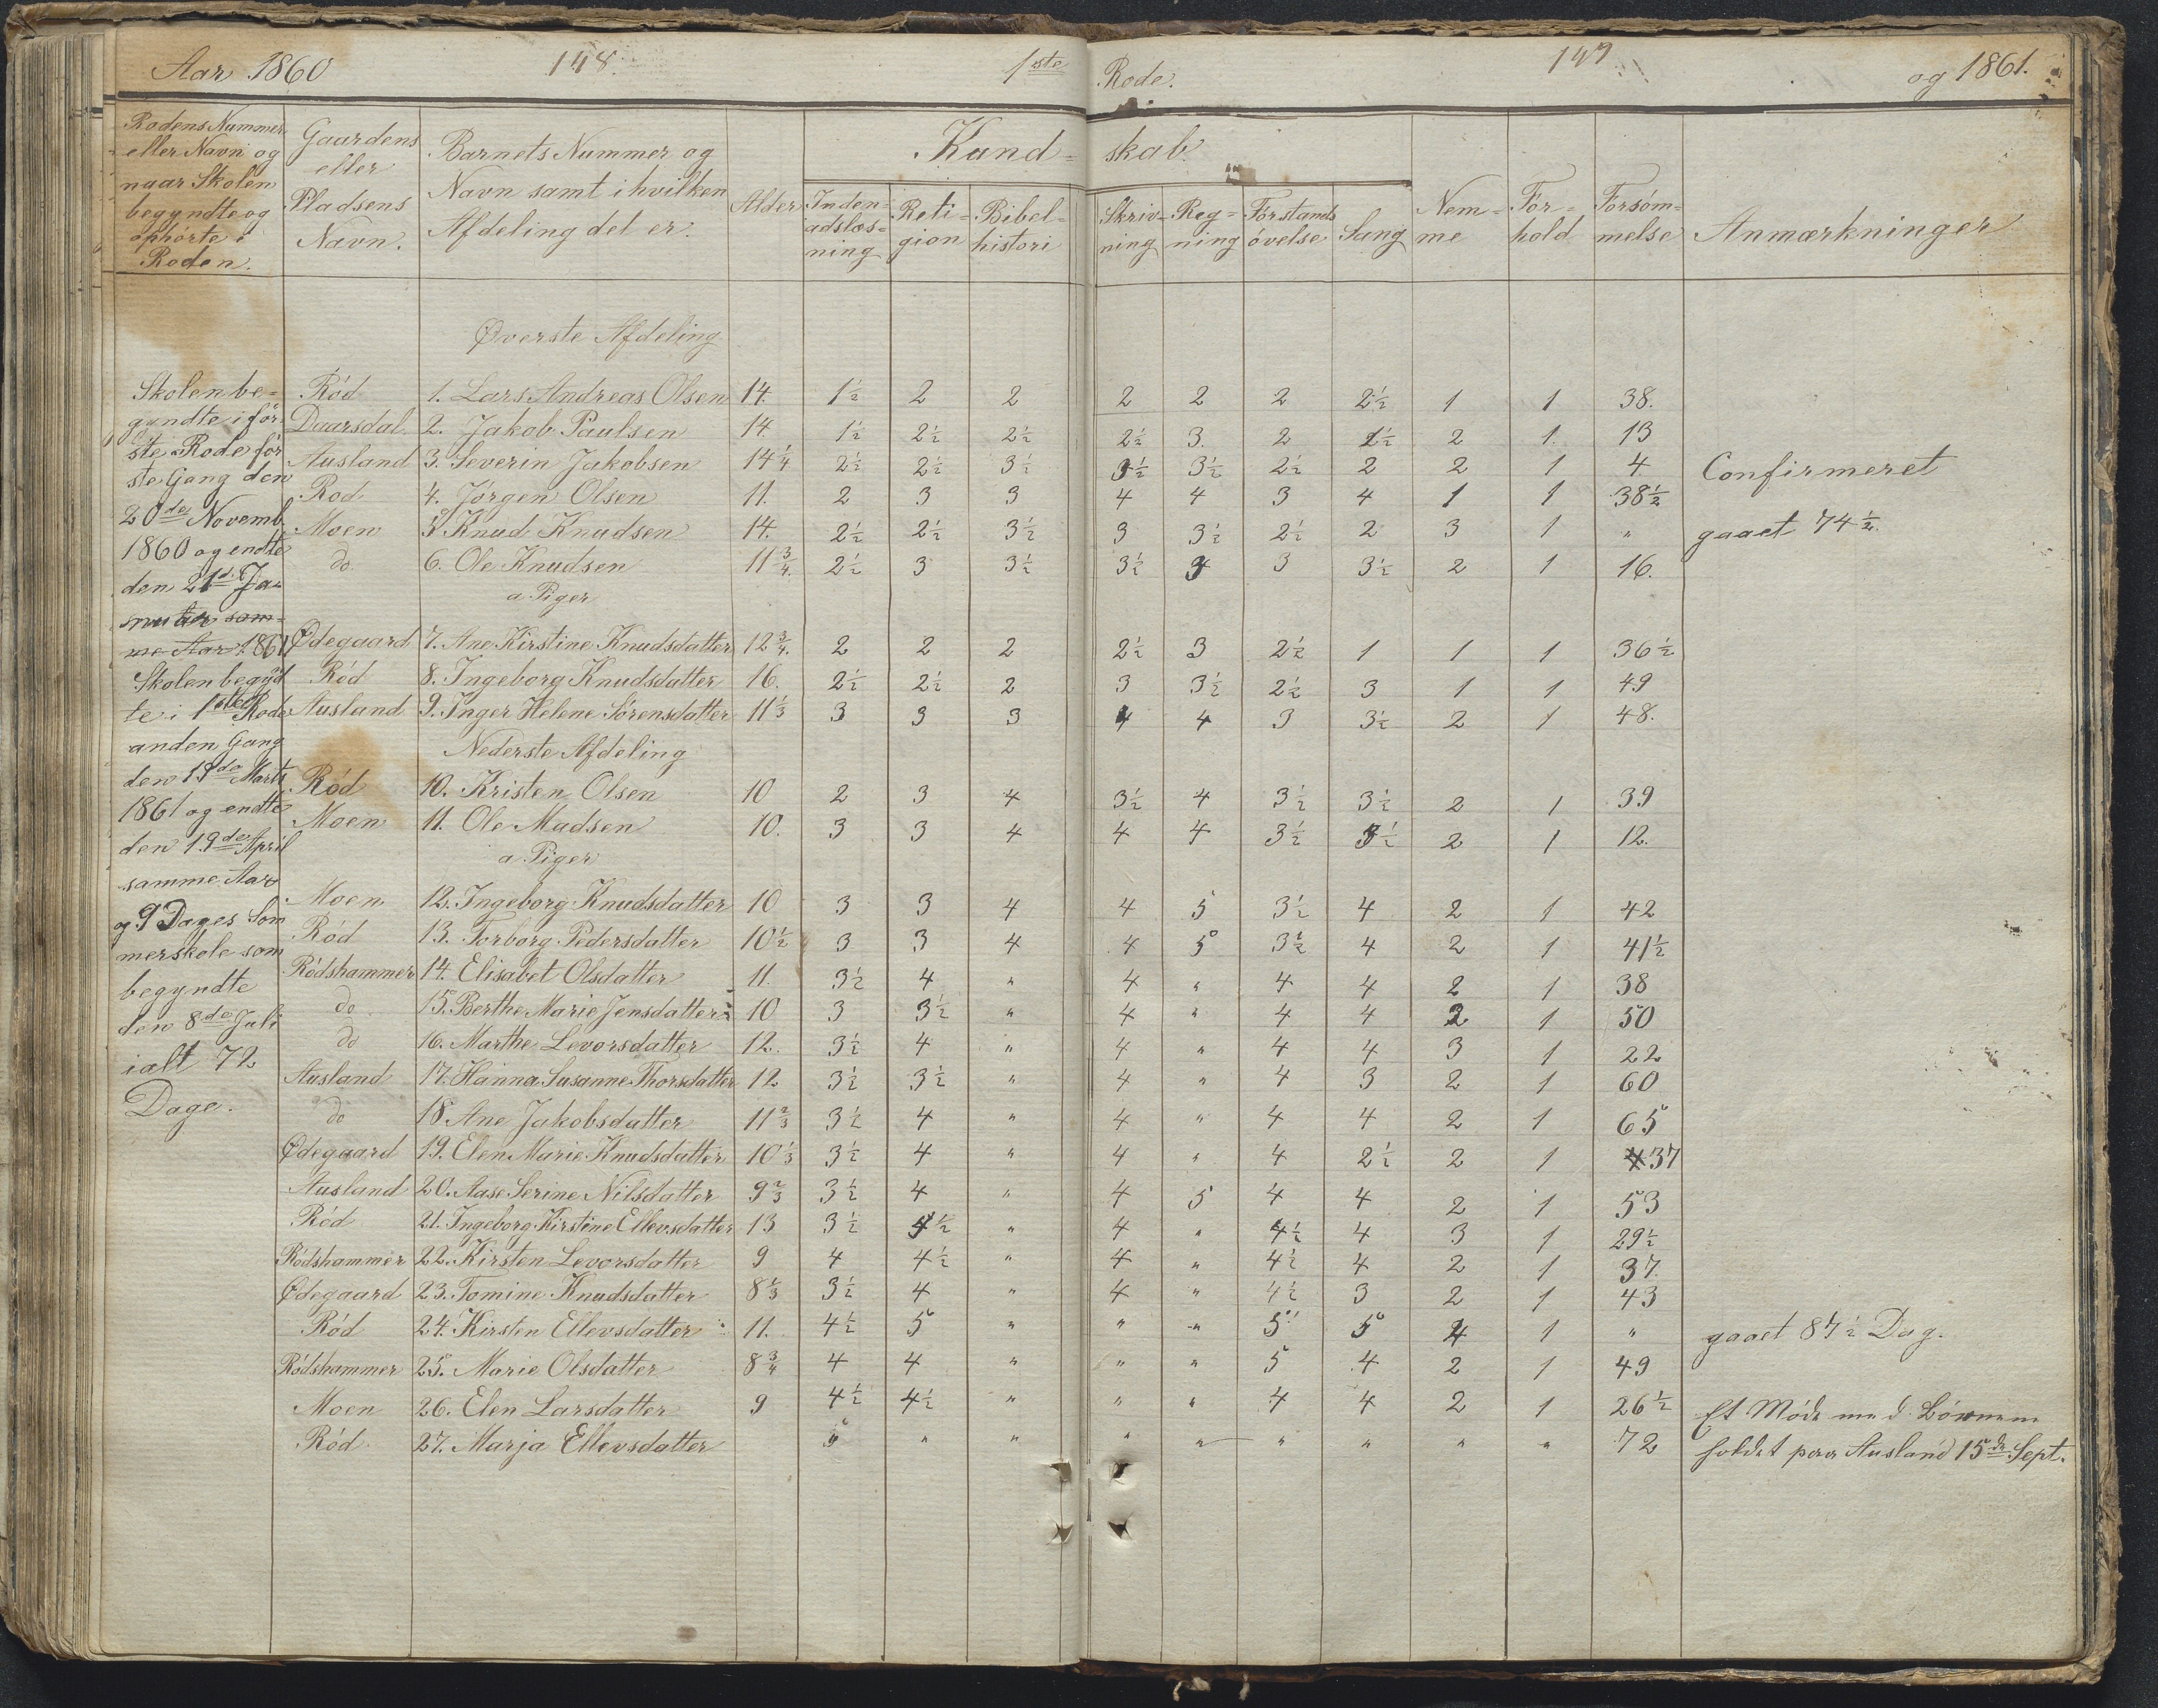 Aar 1860 148. 1ste Rode. 149 og 1861.
Rodens Nummer eller Navn og naar Skolen begyndte og ophörte i Roden.
Gaardens eller Pladsens Navn.
Barnets Nummer og Navn samt i hvilken Afdeling det er.
Alder
Kund- skab.
Inden- adslæs- ning
Reli- gion
Bibel- histori
Skriv- ning
Reg- ning
Forstands övelse
Sang
Nem- me
For- hold
Forsöm- melse
Anmærkninger
Överste Afdeling
Skolen be-
gyndte i för-
ste Rode för
ste Gang den
20de Novemb.
1860 og endte
den 21de Ja-
nuar sam-
me Aar 1861
Skolen begyd
te i 1ste Rode
anden Gang
den 19de Marts
1861 og endte
den 19de April
samme Aar
og 9 Dages Som
merskole som
begyndte
den 8de Juli
ialt 72
Dage.
Röd 1. Lars Andreas Olsen 14 1½ 2 2 2 2 2 2½ 1 1 38.
Daarsdal 2. Jakob Paulsen 14. 1½ 2½ 2½ 2½ 3. 2 1½ 2 1. 13
Ausland 3. Severin Jakobsen 14¼ 2½ 2½ 3½ 3½ 3½ 2½ 2 2 1 4 Confirmeret
Rod 4. Jörgen Olsen 11. 2 3 3 4 4 3 4 1 1 38½
Moen 5 Knud Knudsen 14. 2½ 2½ 3½ 3 3½ 2½ 2 3 1 " gaaet 74½.
do. 6. Ole Knudsen 11¾. 2½ 3 3½ 3½ 3 3 3½ 2 1 16.
a Piger
Ödegaard 7. Ane Kirstine Knudsdatter 12¾. 2 2 2 2½ 3 2½ 1 1 1 36½
Röd 8. Ingeborg Knudsdatter 16. 2½ 2½ 2 3 3½ 2½ 3 1 1 49
Ausland 9. Inger Helene Sörensdatter 11⅓ 3 3 3 4 4 3 3½ 2 1 48.
Nederste Afdeling
Röd 10. Kristen Olsen 10 2 3 4 3½ 4 3½ 3½ 2 1 39
Moen 11. Ole Madsen 10. 3 3 4 4 4 3½ 3½ 2 1 12.
a Piger
Moen 12. Ingeborg Knudsdatter 10 3 3 4 4 5 3½ 4 2 1 42
Röd 13. Torborg Pedersdatter 10½ 3 3 4 4 5 3½ 4 2 1 41½
Rödshammer 14. Elisabet Olsdatter 11. 3½ 4 " 4 " 4 4 2 1 38
do 15. Berthe Marie Jensdatter 10 3 3½ " 4 " 4 4 2 1 50
do 16. Marthe Levorsdatter 12. 3½ 4 " 4 " 4 4 3 1 22
Ausland 17. Hanna Susanne Thorsdatter 12 3½ 3½ " 4 " 4 3 2 1 60
do 18. Ane Jakobsdatter 11⅔ 3½ 4 " 4 " 4 4 2 1 65
Ödegaard 19. Elen Marie Knudsdatter 10⅓ 3½ 4 " 4 " 4 2½ 2 1 37
Ausland 20. Aase Serine Nilsdatter 9⅔ 3½ 4 " 4 5 4 4 2 1 53
Röd 21. Ingeborg Kirstine Ellevsdatter 13 3½ 4½ " 4 " 4½ 4 3 1 29½
Rödshammer 22. Kirsten Levorsdatter 9 4 4½ " 4 " 4½ 4 2 1 37.
Ödegaard 23. Tomine Knudsdatter 8⅓ 3½ 4 " 4 " 4½ 3 2 1 43
Röd 24. Kirsten Ellevsdatter 11. 4½ 5 " " " 5 5 4 1 " gaaet 87½ Dag.
Rödshammer 25. Marie Olsdatter 8¾ 4 4 " " " 5 4 2 1 49
Moen 26. Elen Larsdatter 9 4½ 4½ " " " 4 4 2 1 26½ Et Möde med Börnene
Röd 27. Marja Ellevsdatter 5 " " " " " " " " 72 holdt paa Ausland 15de Sept.